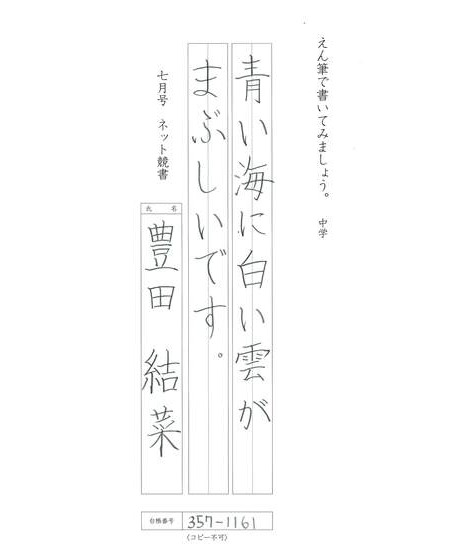 えん筆で書いてみましょう。 中学
青い海に白い雲が
まぶしいです。
七月号 ネット競書
氏名
豊田 結菜
台帳番号 357-1161
〈コピー不可〉